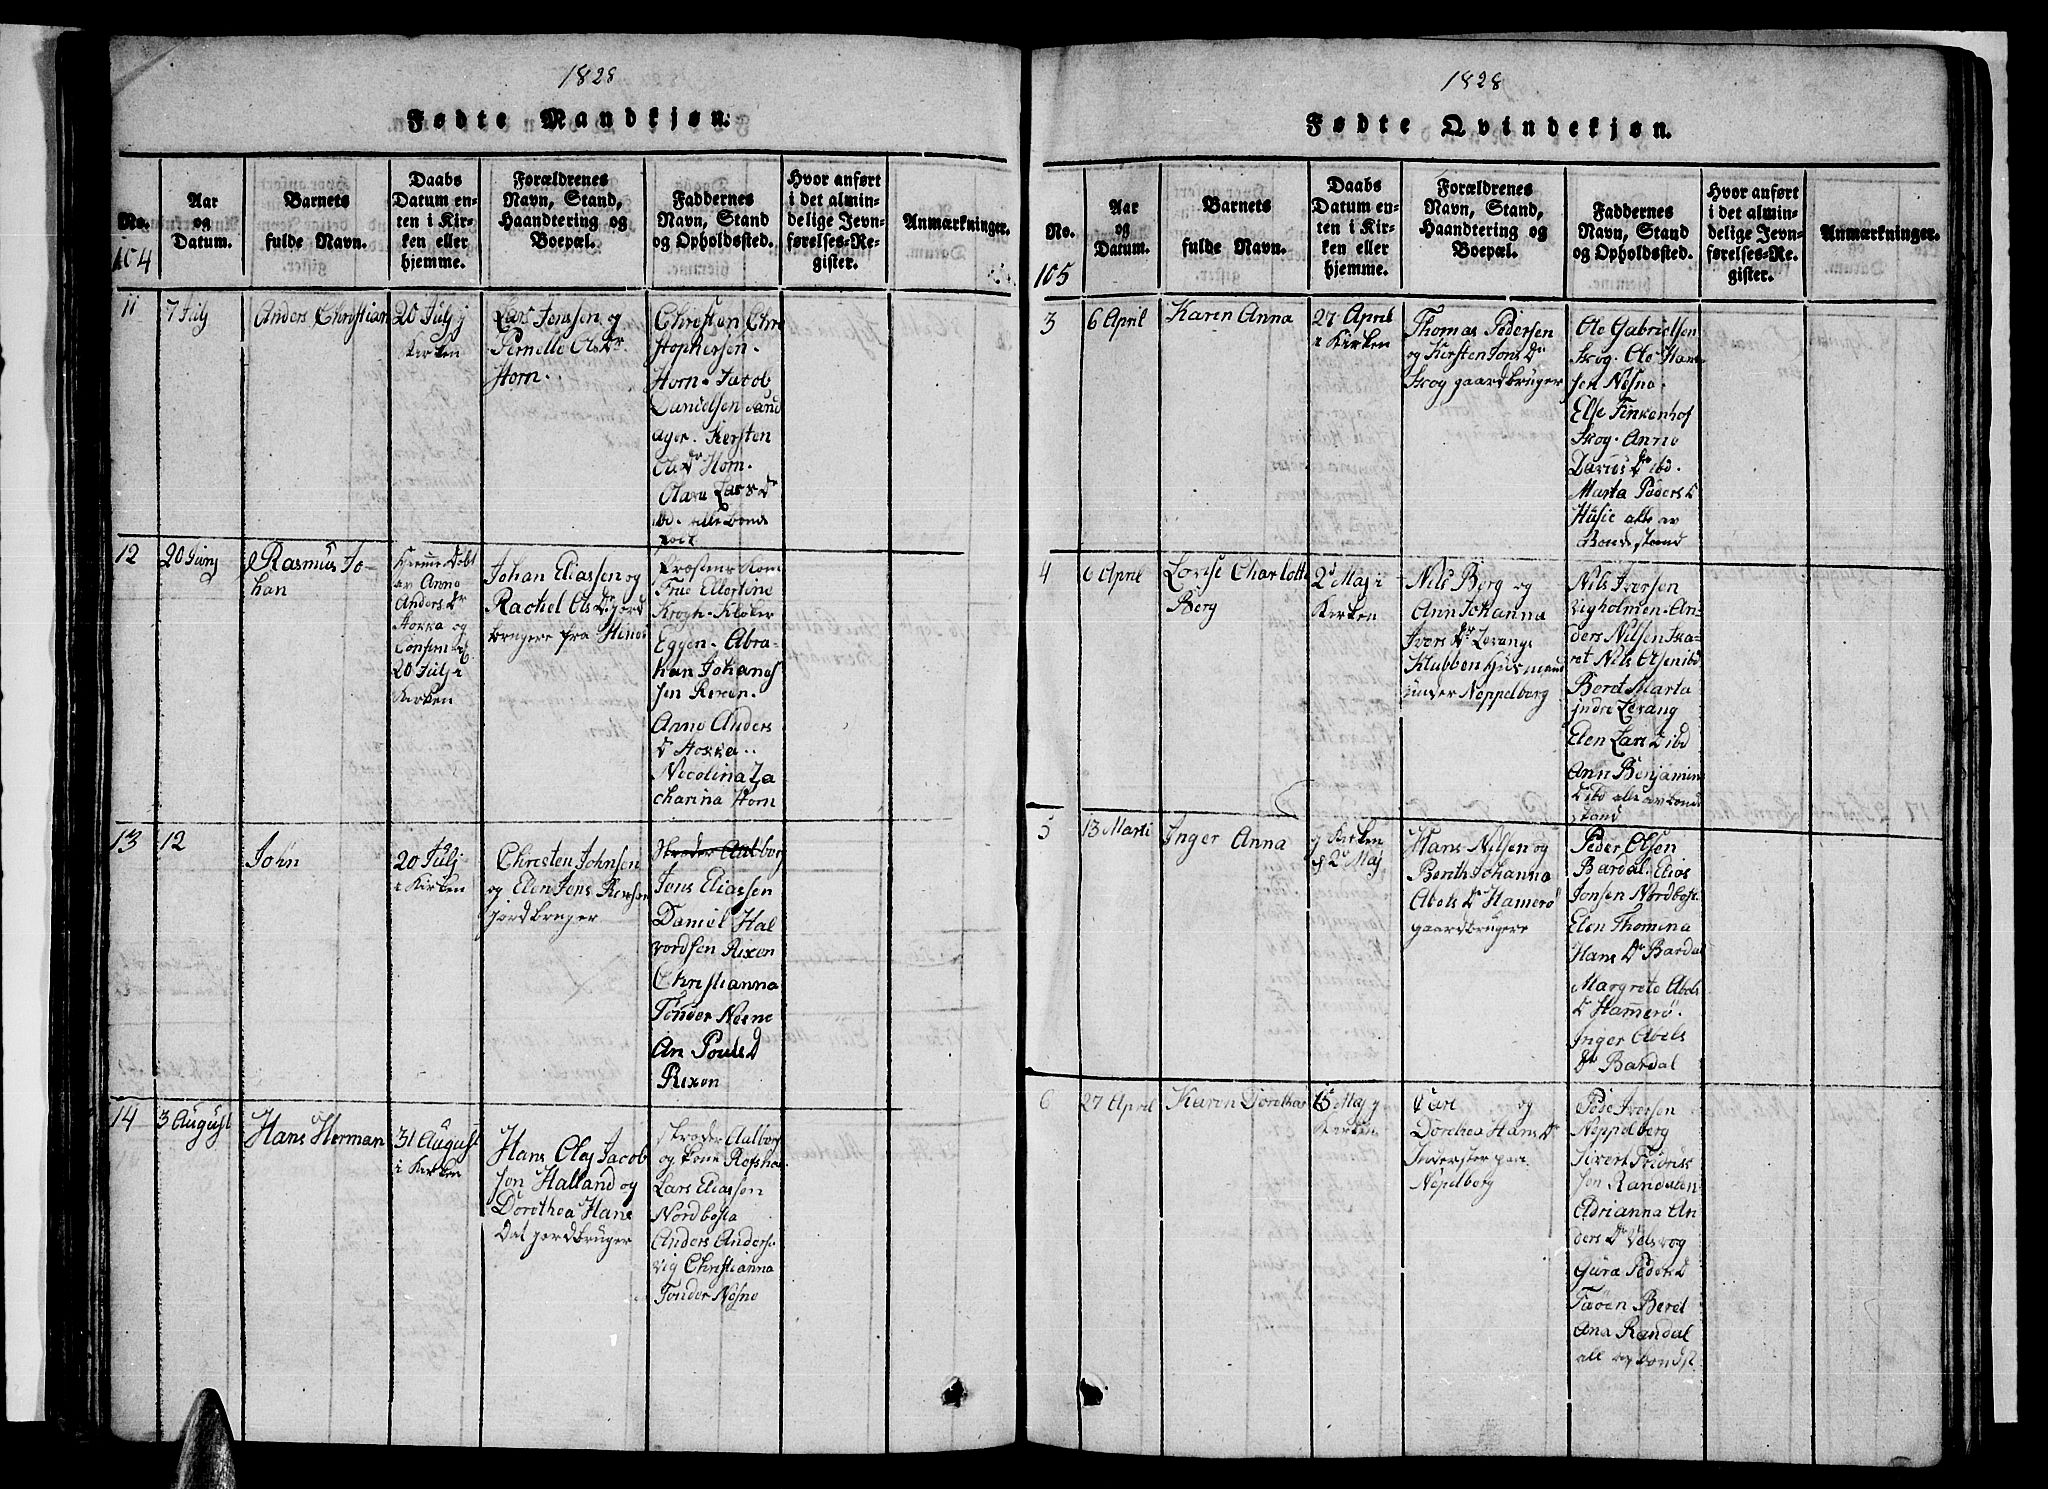 1828
Fødte Mandkjøn.
No.
104
Aar
og
Datum.
Barnets
fulde Navn.
Daabs
Datum en-
ten i Kir-
ken eller
hjemme.
Forældrenes
Navn, Stand,
Haandtering og
Boepæl.
Faddernes
Navn, Stand
og Opholdssted.
Hvor anført
i det almin-
delige Jevn-
førelses-Re-
gister.
Anmærkninger.
11
7 Julj
Anders Christian
20 Julj
Kirken
Lars Jenssen og
Pernelle Ols Dr
Horn.
Christen Chri
stophersen
Horn. Jacob
Danielsen Sand
ager. Kersten
Ols Dr Horn.
Lars Dr
ibd. alle bonde
12
20 Junj
Rasmus Jo-
han
Hjemme Døbt
av Anne
Anders Dr
Hokka og
20 Julj i
Kirken
Johan Eliassen og
Rachel Ols Dr jord
brugere fra
Frue Ellertine
Krogh. Kløker
Eggen. Abra-
ham Johanes
sen Rixen.
Anne Anders
D Hokka.
Nicolina Za
charina Horn
13
12
John
20 Julj
i Kirken
Christen Johnsen
og Elen Jens
jordbruger
Skrøder Aalborg
Jens Eliassen
Daniel Hal
vordsen Rixen
Christianna
Tønder Nesne
An Pouls D
Rixen
14
3 August
Hans Herman
31 August
i Kirken
Hans Olaj Jacob
sen Halland og
Dorothea Hans
Dat jordbruger
Skrøder Aalborg
og kone
Lars Eliassen
Nordbosta
Anders Anderse
vig Christianna
Tonder Nesne
1828
Fødte Qvindekjøn.
No.
105
Aar
og
Datum.
Barnets
fulde Navn.
Daabs
Datum en-
ten i Kir-
ken eller
hjemme.
Forældrenes
Navn, Stand,
Haandtering og
Boepæl.
Faddernes
Navn, Stand
og Opholdssted.
Hvor anført
i det almin-
delige Jevn-
førelses-Re-
gister.
Anmærkninger.
3
6 April
Karen Anna
27 April
i Kirken
Thomas Pedersen
og Kersten Jons Dr
Skog gaardbruger
Ole Gabrielsen
Skog. Ole Han
sen Nesna.
Else Finkenhof
Skog. Anne
Darius Dr ibd.
Marta Peders D
Husie alle av
Bondestand
4
6 April
Lovise Charlotte
Berg
2 Maj i
Kirken
Nils Berg og
Ann Johanna
Ivers Dr Levang
Klubben Husmand
under Neppelberg
Nils Iversen
vigholmen. An-
ders Nilsen Ska-
ret Nils Olsen ibd
Beret Marta
indre Levang
Elen Lars D ibd
Ann Benjamins
D ibd alle av bonde
stand
5
13 Marti
Inger Anna
i Kirken
2 Maj
Hans Nilsen og
Bereth Johanna
Abels Dr Hamerø
gaardbrugere
Peder Olsen
Bardal. Elias
Jonsen Nordbost.
Elen Thomina
Hans Dr Bardal
Margrete Abels
D Hamerø.
Inger Abels
Dr Bardal
6
27 April
Karen Dorethea
15 Maj i
Kirken
Carl og
Dorethea Hans Dr
Inderster paa
Nepelberg
Peder Iversen
Neppelberg
Sivert Fridrik
sen Randalen
Adrianna An
ders Dr
Gura Peders D
Beret
Ana Randal
all av bondst